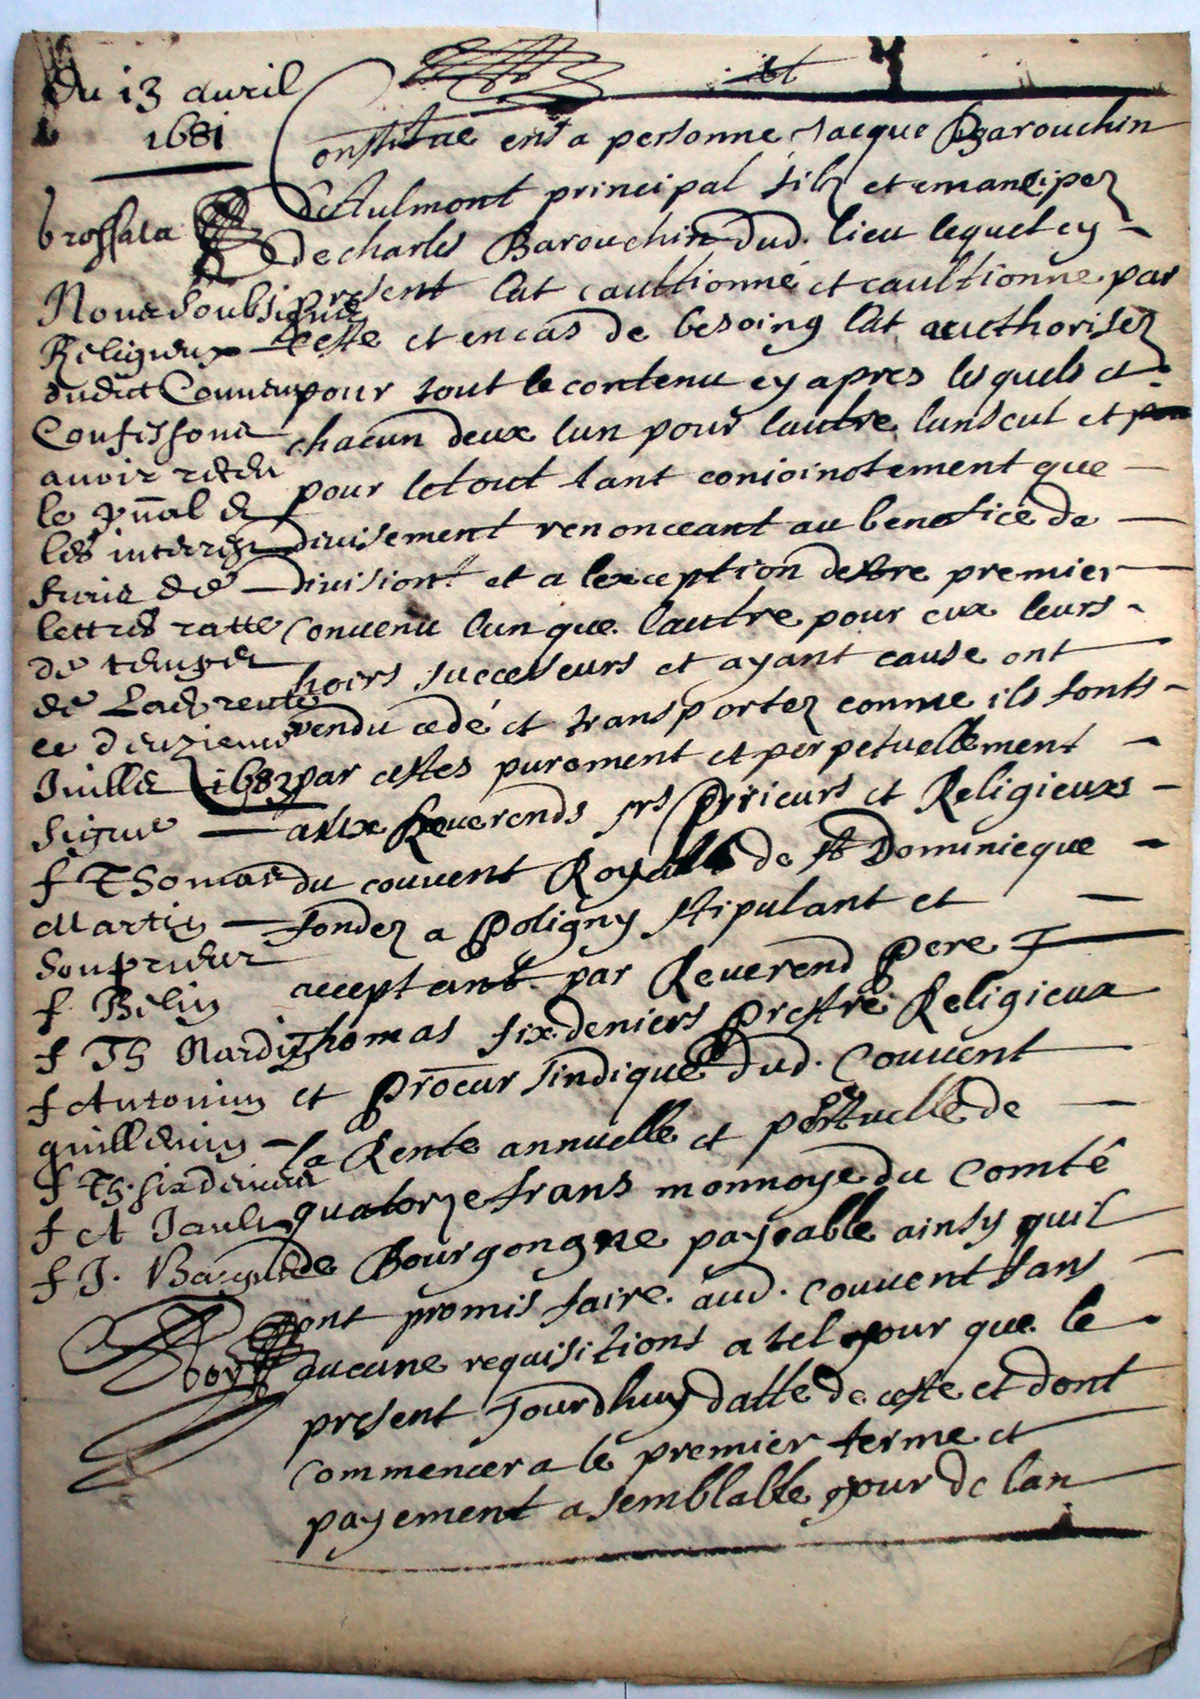 Du 13 auril
1681
brossata
Nous soubsignés
Religieux
dudict Conuent
Confessons
auoir receu
le pnãl &
les interestz
furis de
lettres ratte
de temps
de Lad rente
ce deuzieme
Juillet 1683
Signue
f Thomas
Martin
Souprieur
f. Belin
f Th Nardin
f Antonin
guillemin
f Th. sixdeniers
f A Jault
f J.
Constitue en sa personne Jacque Barouchin
d'Aulmont principal filz et emancipez
de charles Barouchin dud. lieu lequel cy
present lat caultionné et caultionne par
ceste et en cas de besoing lat aucthorisez
pour tout le contenu cy apres lesquels et
chacun deux lun pour lautre lun seul et
pour letout tant conioinctement que
diuisement renonceant au benefice de
diuision. et a lexception destre premier
Conuenu lun que lautre pour eux leurs
hoirs successeurs et ayant cause ont
vendu cedé et transportez comme ils font
par cestes purement et perpetuellement
aux Reuerends prs Prieurs et Religieux
du couuent Royalle de st Dominicque
fondez a Poligny stipulant et
acceptant par Reuerend Pere f
Thomas sixdeniers Prestre Religieux
et Procur sindique dud. Couuent
la Rente annuelle et ppetuelle de
quatorze frans monnoye du Comté
de Bourgongne payeable ainsy quil
ont promis faire. aud. Couuent sans
aucune requisitions a tel jour que le
present Jourdhuy datte de ceste et dont
commencera le premier terme et
payement a semblable jour de lan